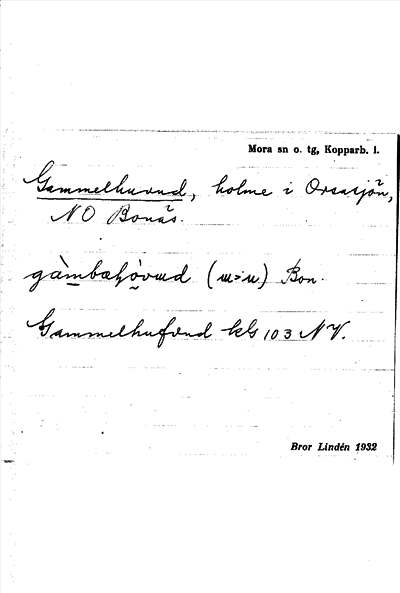 Mora sn o. tg, Kopparb. l.
Gammelhuvud, holme i Orsasjön,
NO Bonäs.
(u>u) Bon.
Gammelhufvud kbl 103 NV.
Bror Lindén 1932